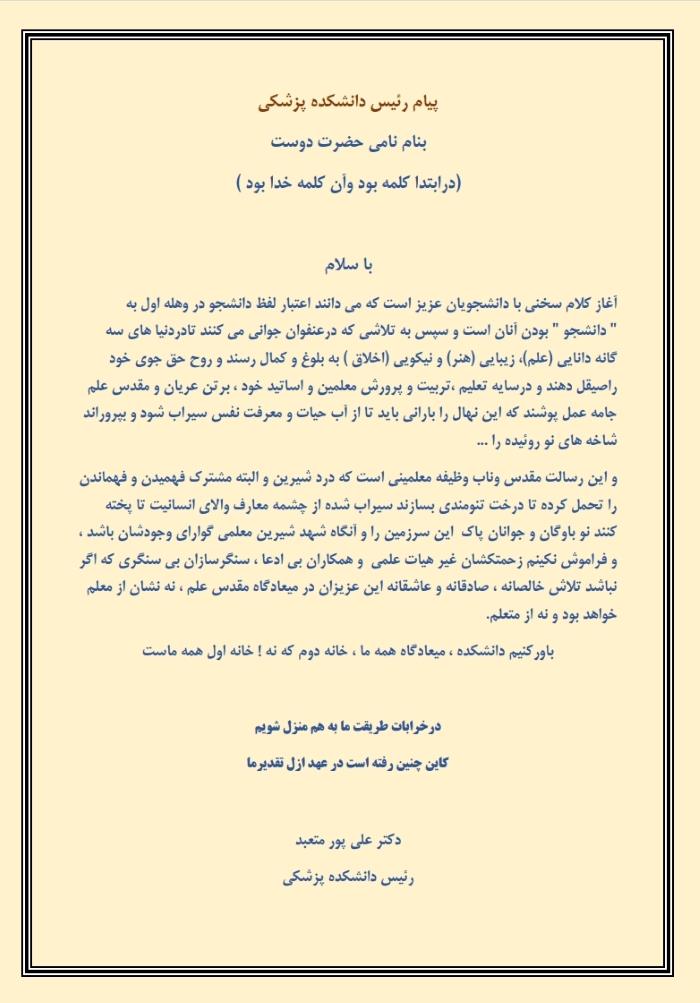 پیام رئیس دانشکده پزشکی
بنام نامی حضرت دوست
(درابتدا کلمه بود وآن کلمه خدا بود )
با سلام
آغاز کلام سخنی با دانشجویان عزیز است که می دانند اعتبار لفظ دانشجو در وهله اول به
" دانشجو " بودن آنان است و سپس به تلاشی که درعنفوان جوانی می کنند تادردنیا های سه
گانه دانایی (علم)، زیبایی (هنر) و نیکویی (اخلاق ) به بلوغ و کمال رسند و روح حق جوی خود
راصیقل دهند و درسایه تعلیم ،تربیت و پرورش معلمین و اساتید خود ، برتن عریان و مقدس علم
جامه عمل پوشند که این نهال را بارانی باید تا از آب حیات و معرفت نفس سیراب شود و بپروراند
شاخه های نو روئیده را ...
و این رسالت مقدس وناب وظیفه معلمینی است که درد شیرین و البته مشترک فهمیدن و فهماندن
را تحمل کرده تا درخت تنومندی بسازند سیراب شده از چشمه معارف والای انسانیت تا پخته
کنند نو باوگان و جوانان پاک این سرزمین را و آنگاه شهد شیرین معلمی گوارای وجودشان باشد ،
و فراموش نکینم زحمتکشان غیر هیات علمی و همکاران بی ادعا ، سنگرسازان بی سنگری که اگر
نباشد تلاش خالصانه ، صادقانه و عاشقانه این عزیزان در میعادگاه مقدس علم ، نه نشان از معلم
خواهد بود و نه از متعلم.
باورکنیم دانشکده ، میعادگاه همه ما ، خانه دوم که نه ! خانه اول همه ماست
درخرابات طریقت ما به هم منزل شویم
کاین چنین رفته است در عهد ازل تقدیرما
دکتر علی پور متعبد
رئیس دانشکده پزشکی